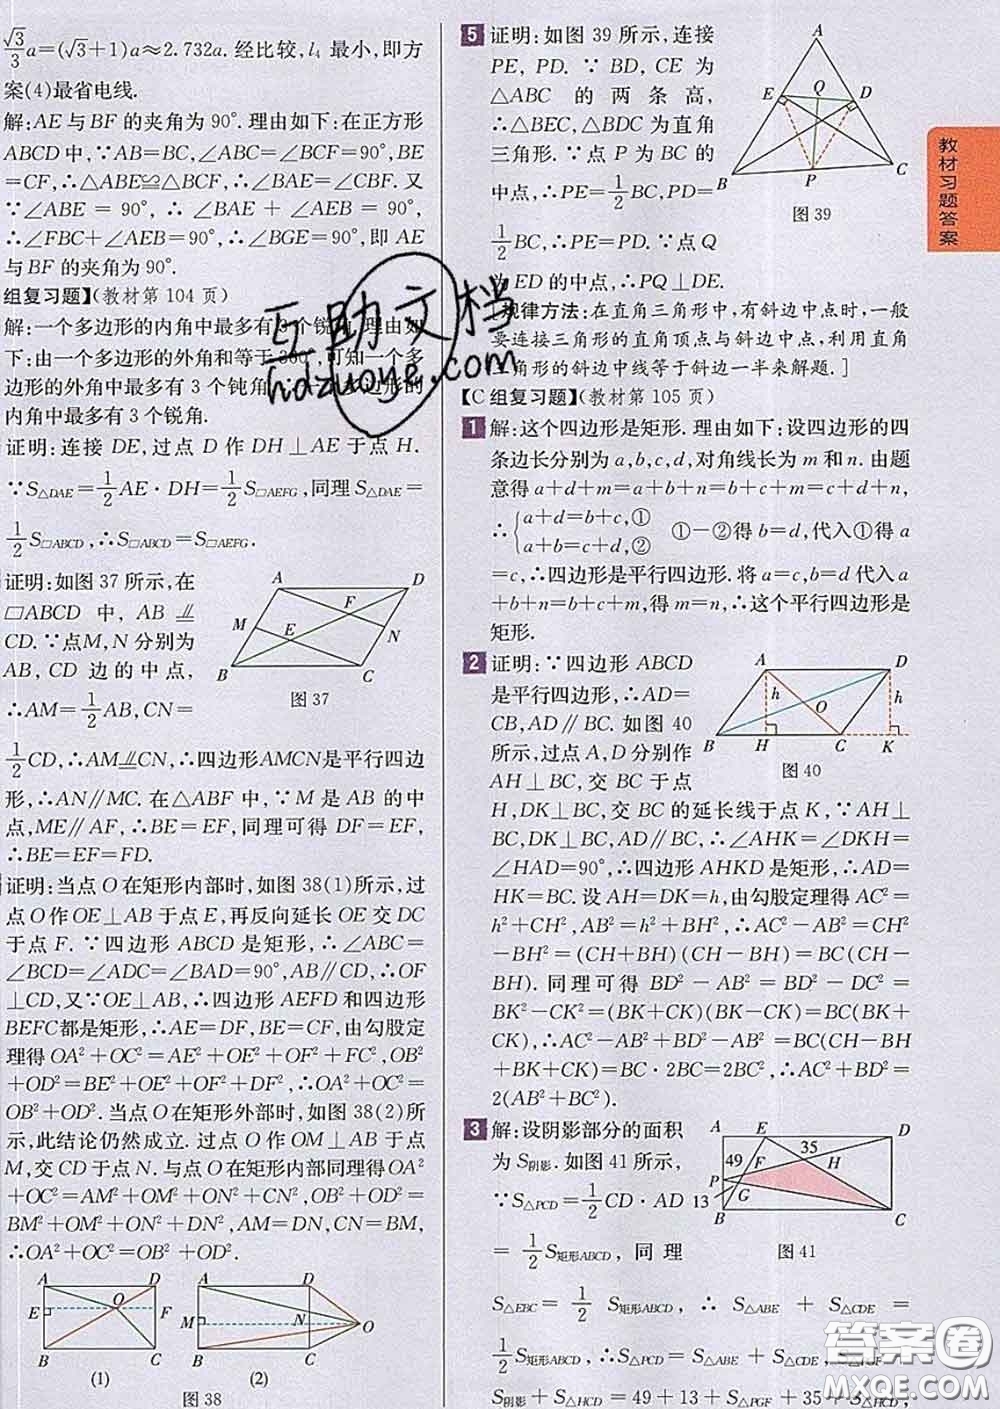 √3/3 a=(√3+1)a≈2.732a. 经比较, l₄ 最小, 即方
案(4)最省电线.
解:AE与BF的夹角为90°.理由如下:在正方形
ABCD中,∵AB=BC,∠ABC=∠BCF=90°,BE
=CF,∴△ABE≌△BCF,∴∠BAE=∠CBF. 又
∵∠ABE = 90°, ∴ ∠BAE + ∠AEB=90°,
∴∠FBC+∠AEB=90°,∴∠BGE=90°,即 AE
与BF的夹角为90°.
组复习题】(教材第 104 页)
解:一个多边形的内角中最多有3个锐角.理由如
下:由一个多边形的外角和等于360°,可知一个多
边形的外角中最多有 3 个钝角,
内角中最多有3个锐角.
证明:连接 DE,过点 D 作 DH⊥AE 于点 H.
∵S△DAE=1/2 AE·DH=1/2 S□AEFG,同理 S△DAE=
1/2 S□ABCD,∴S□ABCD=S□AEFG.
证明:如图 37 所示,在
□ABCD 中, AB ∥=
CD.∵点M,N 分别为
AB,CD 边的中点,
∴AM=1/2 AB,CN=
A D F M E N B C
图 37
1/2 CD,∴AM∥=CN,∴四边形AMCN是平行四边
形,∴AN∥MC. 在△ABF 中,∵M 是 AB 的中
点,ME∥AF,∴BE=EF,同理可得 DF=EF,
∴BE=EF=FD.
证明:当点O在矩形内部时,如图 38(1)所示,过
点O作OE⊥AB于点E,再反向延长OE交DC
于点 F. ∵四边形 ABCD 是矩形,∴∠ABC=
∠BCD=∠ADC=∠BAD=90°,AB∥CD,∴OF
⊥CD,又∵OE⊥AB,∴四边形 AEFD 和四边形
BEFC都是矩形,∴AE=DF,BE=CF,由勾股定
理得OA²+OC²=AE²+OE²+OF²+FC²,OB²
+OD²=BE²+OE²+OF²+DF²,∴OA²+OC²=
OB²+OD². 当点O在矩形外部时,如图 38(2)所
示,此结论仍然成立. 过点 O 作 OM⊥AB 于点
M,交CD于点N.与点O在矩形内部同理得OA²
+OC²=AM²+OM²+ON²+CN²,OB²+OD²=
BM²+OM²+ON²+DN²,AM=DN,CN=BM,
∴OA²+OC²=OB²+OD².
A D E O F B C
(1)
A D M N O B C
(2)
图 38
5 证明:如图 39 所示,连接
PE, PD.∵BD, CE 为
△ABC 的两条高,
∴△BEC,△BDC为直角
三角形.∵点 P 为 BC 的
中点,∴PE=1/2 BC,PD=
A E Q D B P C
图 39
1/2 BC,∴PE=PD.∵点 Q
为ED的中点,∴PQ⊥DE.
[规律方法:在直角三角形中,有斜边中点时,一般
要连接三角形的直角顶点与斜边中点,利用直角
三角形的斜边中线等于斜边一半来解题.]
【C 组复习题】(教材第 105 页)
1 解:这个四边形是矩形.理由如下:设四边形的四
条边长分别为a,b,c,d,对角线长为m和n.由题
意得a+d+m=a+b+n=b+c+m=c+d+n,
∴{a+d=b+c,① a+b=c+d,② ①-②得b=d,代入①得a
=c,∴四边形是平行四边形.将a=c,b=d代入a
+b+n=b+c+m,得m=n,∴这个平行四边形是
矩形.
2 证明:∵四边形 ABCD
是平行四边形,∴AD=
CB,AD∥BC. 如图 40
所示,过点A,D分别作
AH⊥BC,交 BC 于点
A D h O h B H C K
图 40
H,DK⊥BC,交 BC 的延长线于点 K,∵AH⊥
BC,DK⊥BC,AD∥BC,∴∠AHK=∠DKH=
∠HAD=90°,∴四边形 AHKD 是矩形,∴AD=
HK=BC. 设 AH=DK=h,由勾股定理得AC²=
h²+CH²,AB²=h²+BH²,∴AC²-AB²=CH²
-BH²=(CH+BH)(CH-BH)=BC(CH-
BH). 同理可得 BD²-AB²=BD²-DC²=
BK²-CK²=(BK+CK)(BK-CK)=BC(BK+
CK),∴AC²-AB²+BD²-AB²=BC(CH-BH
+BK+CK)=BC·2BC=2BC²,∴AC²+BD²=
2(AB²+BC²).
3 解:设阴影部分的面积
为S阴影.如图 41 所示,
∵S△PCD=1/2 CD·AD
=1/2 S矩形ABCD,同理
A E D 35 49 F H P G 13 B C
图 41
S△EBC=1/2 S矩形ABCD,∴S△ABE+S△CDE=
1/2 S矩形ABCD,∴S△PCD=S△ABE+S△CDE,
S阴影+S△HCD=49+13+S△PGF+35+S△HCD,
教材习题答案
互助文档
hdzuoye.com
答案圈
MXQE.COM